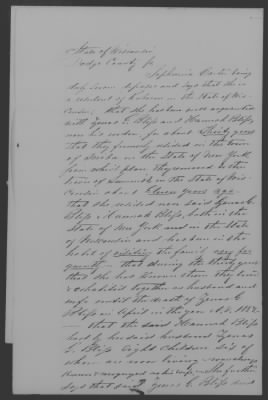 State of Wisconsin
Dodge County ss
Sophronia Carter being
duly sworn deposes and says that she is
a resident of in the State of Wis-
consin; that she has been well acquainted
with Zenas E. Bliss and Hannah Bliss,
now his widow, for about thirty years
that they formerly resided in the town
of in the State of New York
from which place they removed to the
town of in the State of Wis-
consin about eleven years ago
that she resided near said Zenas E.
Bliss & Hannah Bliss, both in the
State of New York and in the State
of Wisconsin and has been in the
habit of visiting the family very fre-
quently - that during the thirty years
that she has known them they lived
& cohabited together as husband and
wife until the death of Zenas E
Bliss in April in the year A.D. 1852
- that the said Hannah Bliss
had by her said husband Zenas
E. Bliss eight children six of
whom are now living - now being
further says that said Zenas E. Bliss and